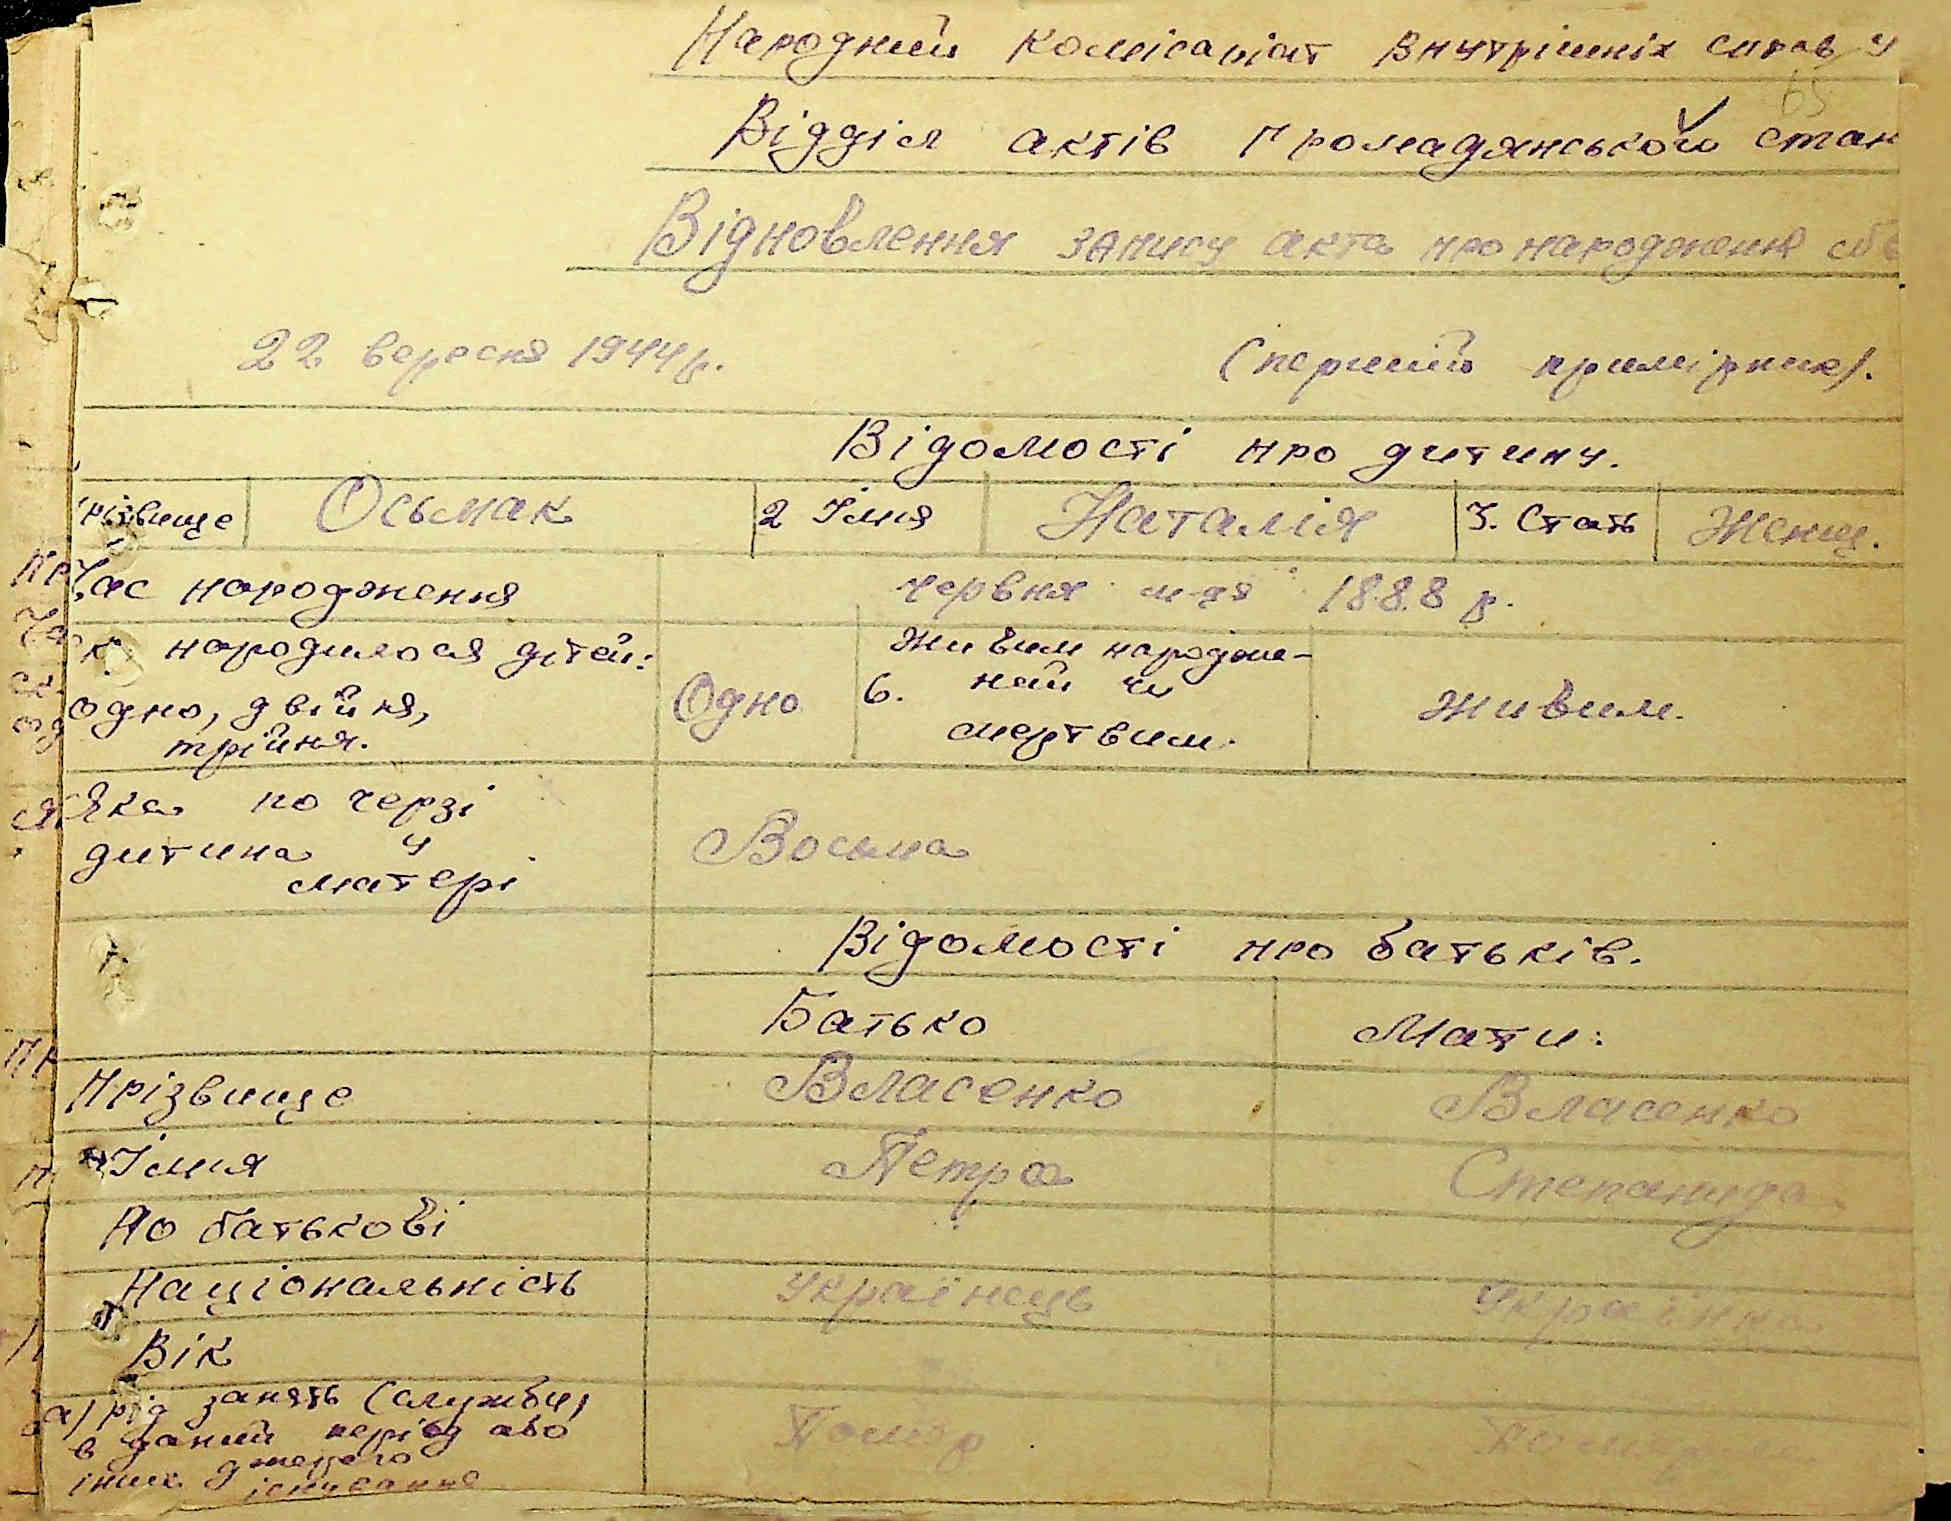 Народний комісаріат внутрішніх справ У
65
Відділ актів громадянського стан
Відновлення запису акта про народження
22 вересня 1944 р. (перший примірник).
Відомості про дитину.
різвище Осьмак 2 Імя Наталія 3. Стать Женщ.
Час народження червня м-ця 1888 р.
к. народилося дітей: одно, двійня, трійня. Одно 6. Живим народже-ний чи мертвим. живим.
Яка по черзі дитина у матері Восьма
Відомості про батьків.
Батько Мати:
Прізвище Власенко Власенко
Імя Петро Степанида
По батькові
Національність Українець Українка
Вік
а) рід занять (служби) в даний період або інше джерело існування Помер Померла